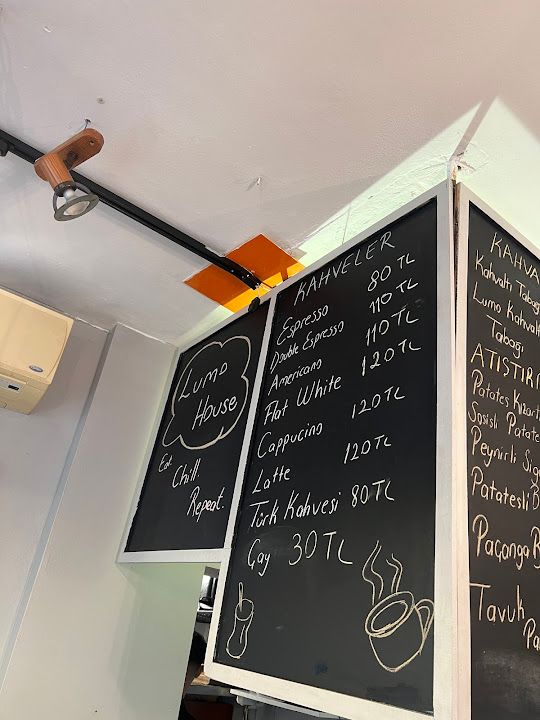 Lumo
House
Eat.
Chill.
Repeat.
KAHVELER
Espresso 80 TL
Double Espresso 110 TL
Americano 110 TL
Flat White 120 TL
Cappucino 120TL
Latte 120TL
Türk Kahvesi 80TL
Çay 30TL
KAHVA
Kahvaltı Tabağ
Lumo Kahvalt
Tabağı
ATIŞTIR
Patates Kızart
Sosisli Patate
Peynirli Sig
Patatesli B
Paçanga B
Tavuk
Pa